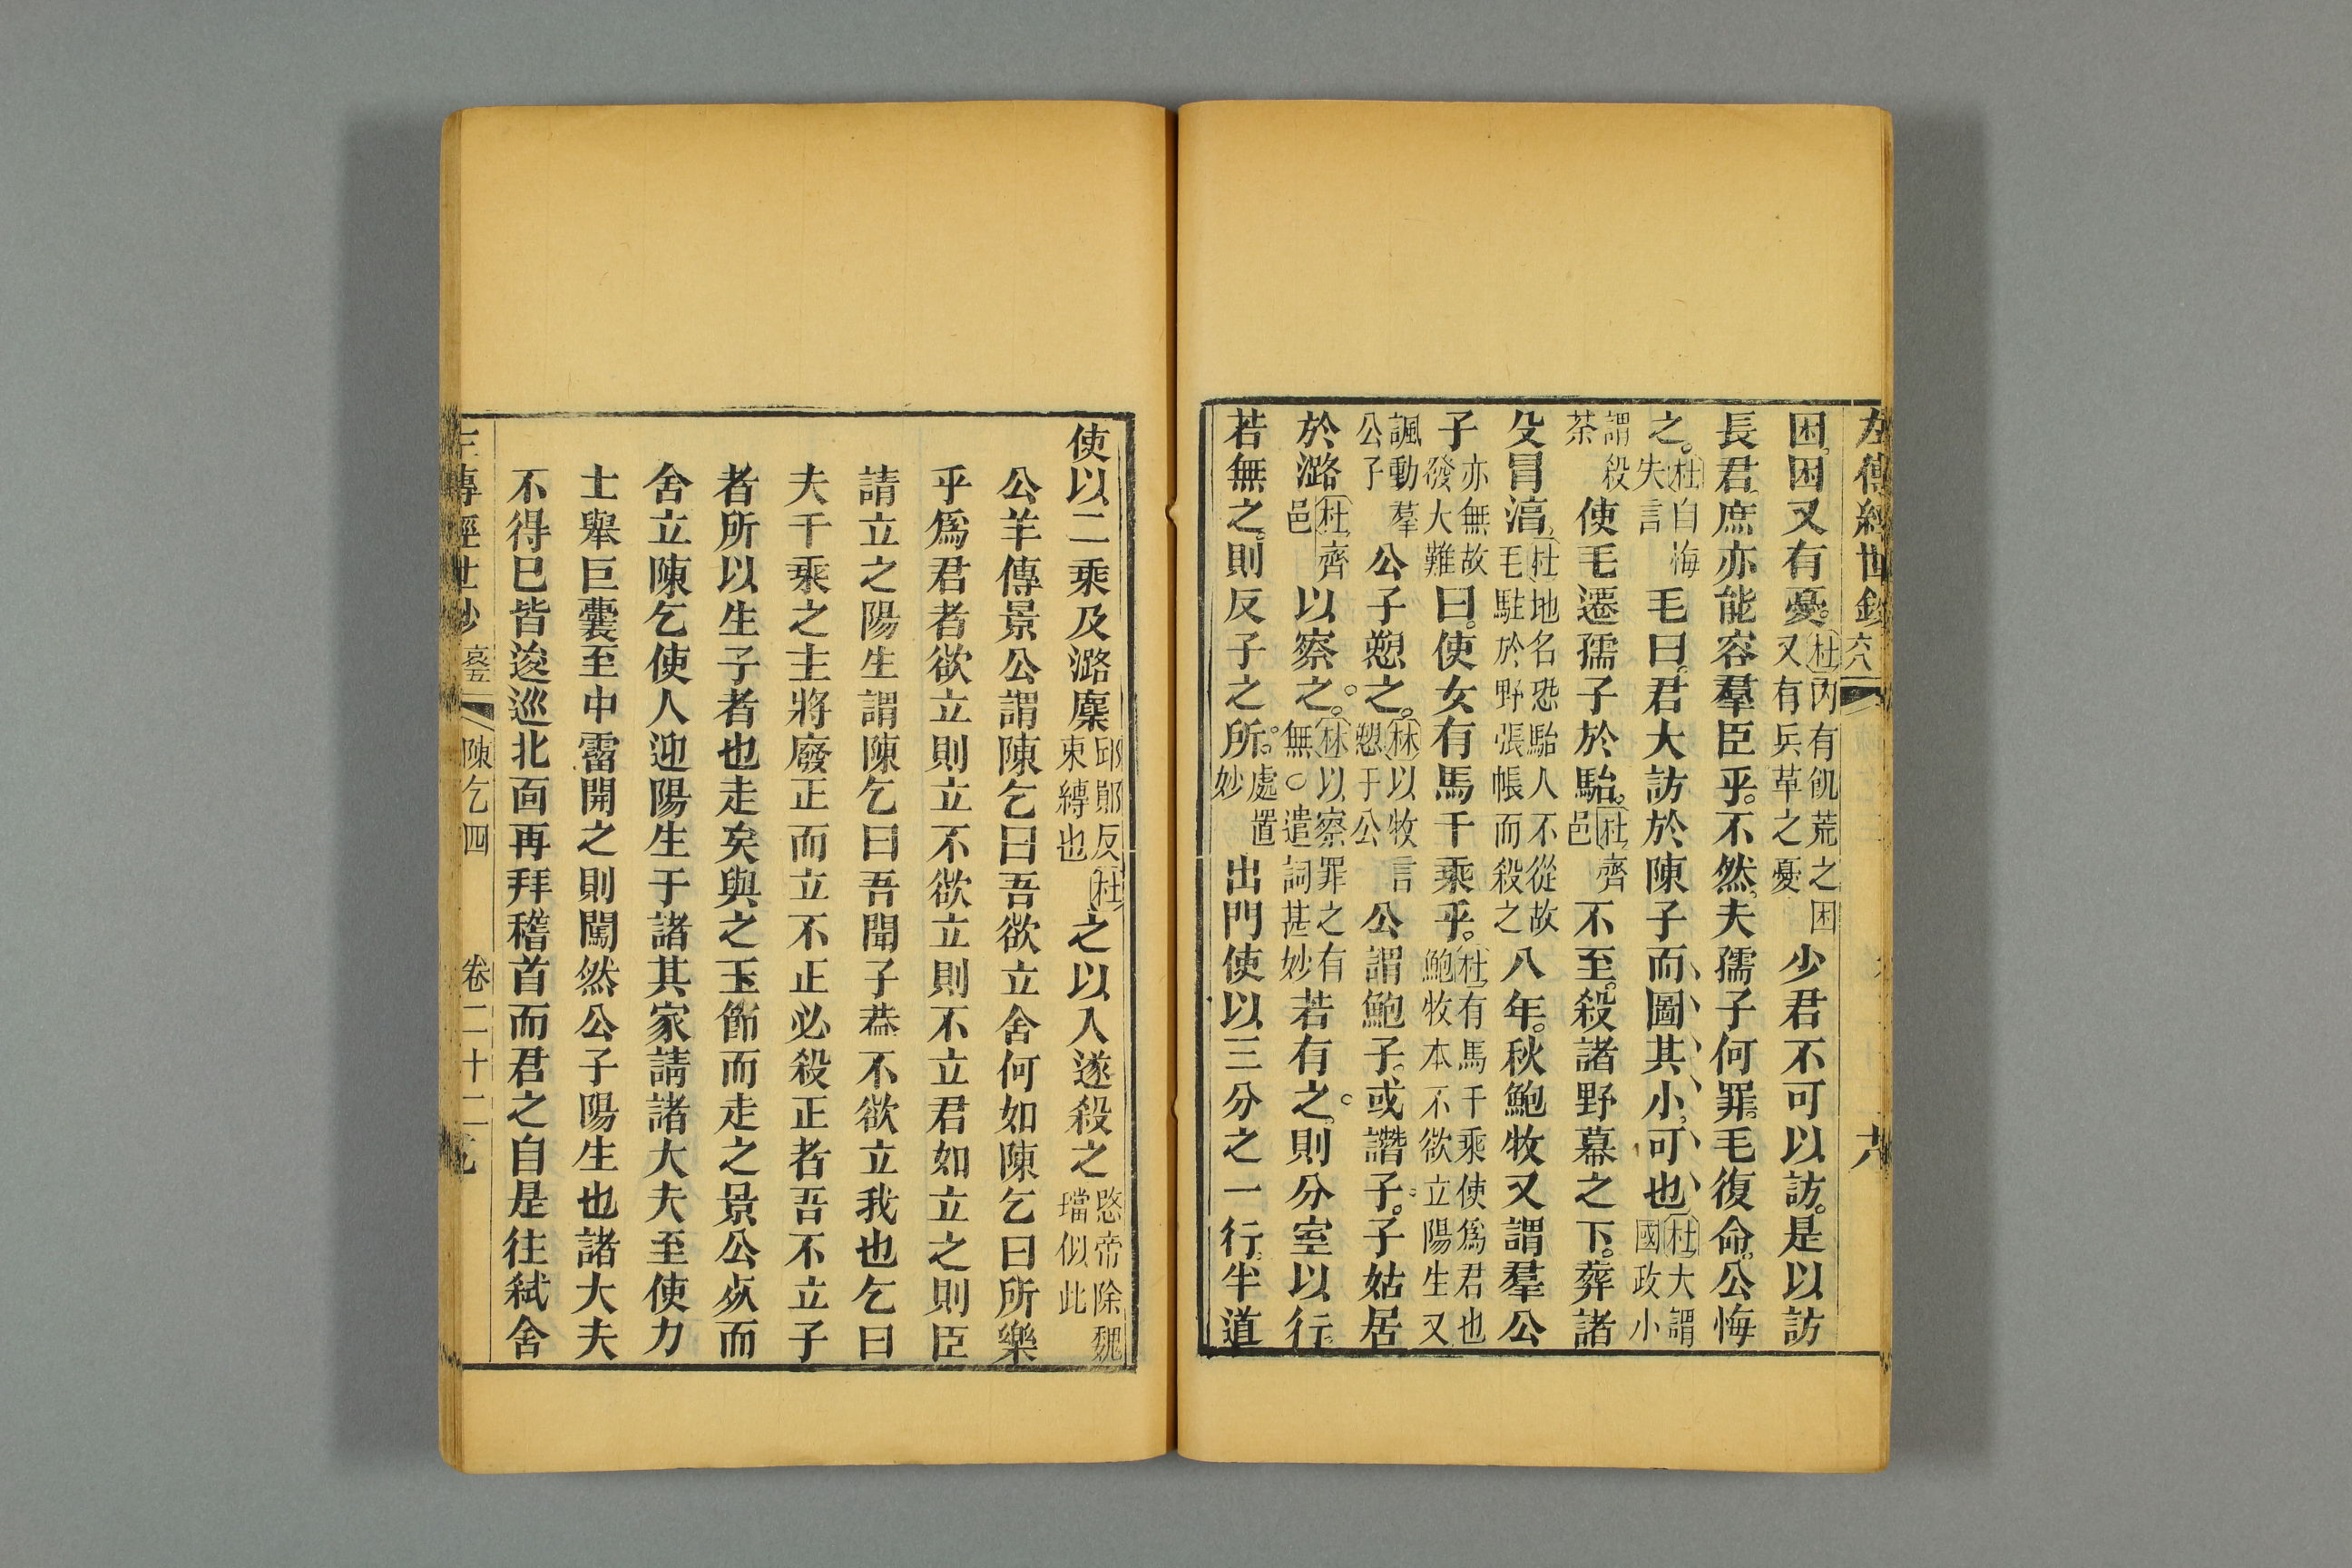 左傳經世鈔 六 六
困困又有憂杜內有飢荒之困又有兵革之憂少君不可以訪是以訪
長君庶亦能容羣臣乎不然夫孺子何罪毛復命公悔
之杜自悔失言毛曰君大訪於陳子而圖其小可也杜大謂國政小
謂殺荼使毛遷孺子於駘杜齊邑不至殺諸野幕之下葬諸
殳冒湻杜地名恐駘人不從故毛駐於野張帳而殺之八年秋鮑牧又謂羣公
子亦無故發大難曰使女有馬千乘乎杜有馬千乘使爲君也鮑牧本不欲立陽生又
諷動羣公子公子愬之林以牧言愬于公公謂鮑子或譖子子姑居
於潞杜齊邑以察之林以察罪之有無○遣詞甚妙若有之則分室以行
若無之則反子之所處置妙出門使以三分之一行半道
使以二乘及潞麇邱隕反杜束縛也之以入遂殺之愍帝除魏璫似此
公羊傳景公謂陳乞曰吾欲立舍何如陳乞曰所樂
乎爲君者欲立則立不欲立則不立君如立之則臣
請立之陽生謂陳乞曰吾聞子葢不欲立我也乞曰
夫千乘之主將廢正而立不正必殺正者吾不立子
者所以生子者也走矣與之玉節而走之景公死而
舍立陳乞使人迎陽生于諸其家請諸大夫至使力
士舉巨囊至中霤開之則闖然公子陽生也諸大夫
不得巳皆逡巡北面再拜稽首而君之自是往弒舍
左傳經世鈔 哀五 陳乞四 卷二十二